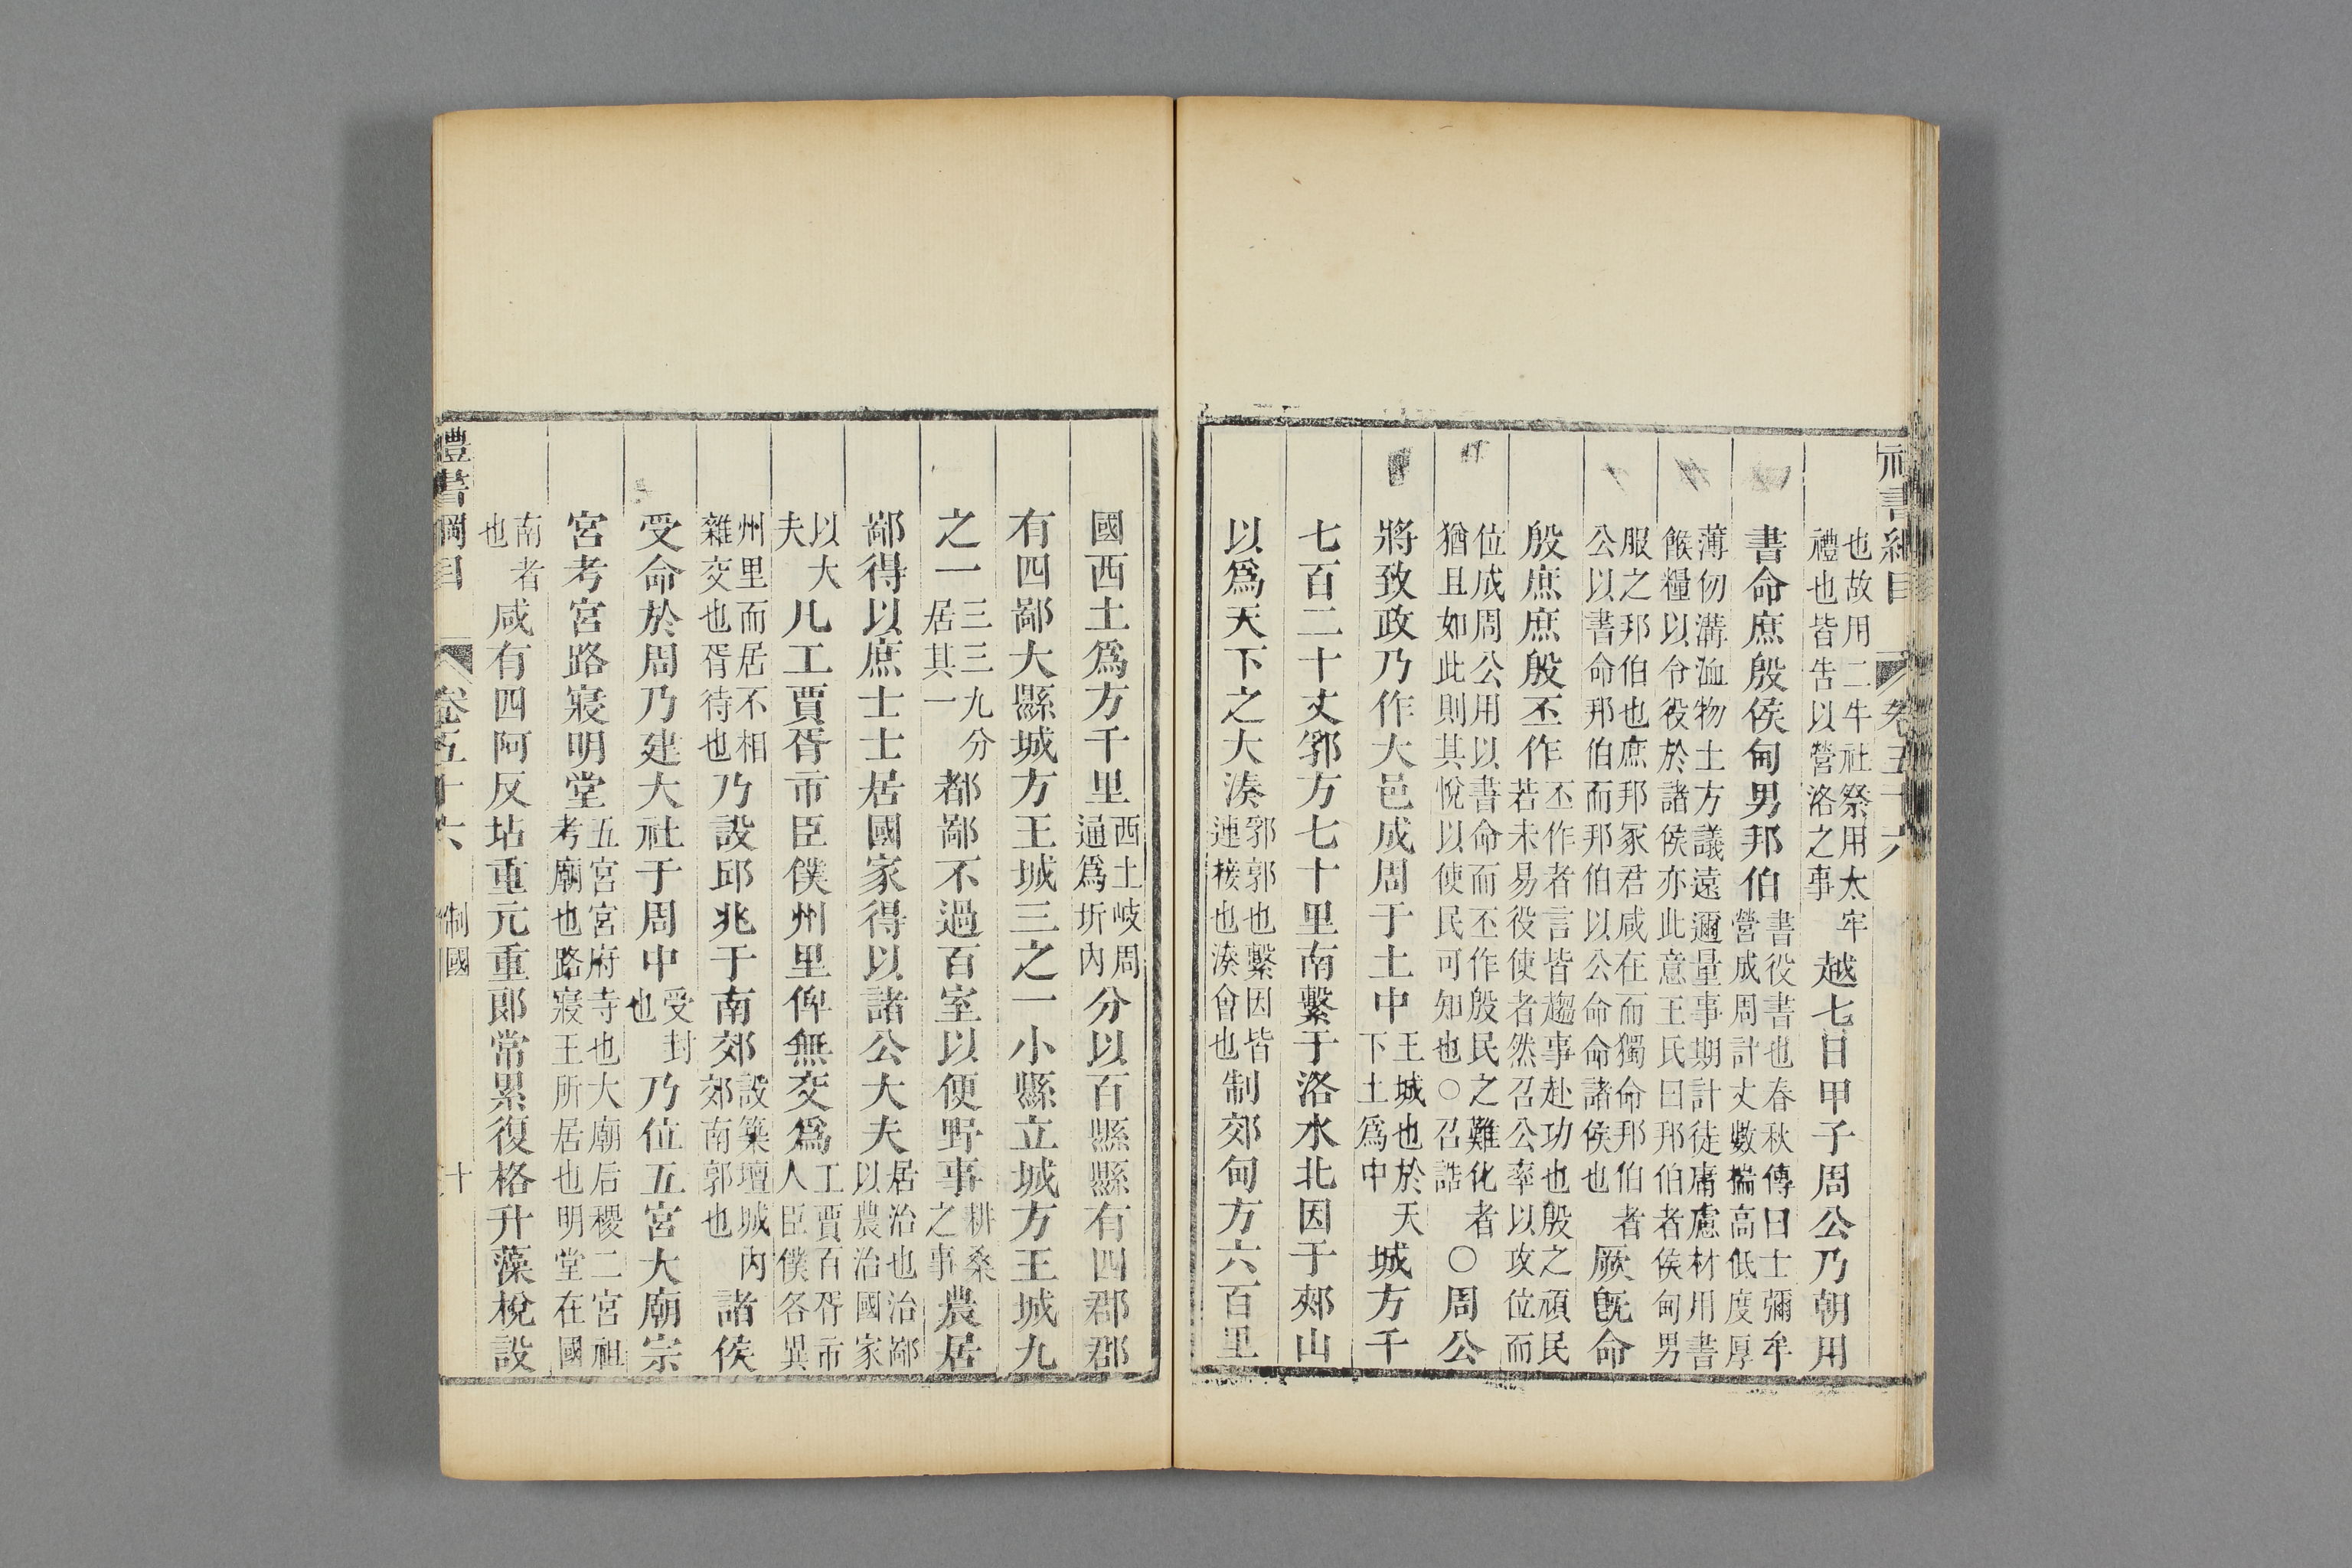 書綱目 卷五十六
也故用二牛社祭用太牢禮也皆告以營洛之事越七日甲子周公乃朝用
書命庶殷侯甸男邦伯書役書書也春秋傳曰士彌牟營成周計丈數揣高低度厚
薄仞溝洫物土方議遠邇量事期計徒庸慮材用書餱糧以令役於諸侯亦此意王氏曰邦伯者侯甸男
服之邦伯也庶邦冢君咸在而獨命邦伯者公以書命邦伯而邦伯以公命命諸侯也厥旣命
殷庶庶殷丕作丕作者言皆趨事赴功也殷之頑民若未易役使者然召公率以攻位而
位成周公用以書命而丕作殷民之難化者猶且如此則其悅以使民可知也○召誥○周公
將致政乃作大邑成周于土中王城也於天下土爲中城方千
七百二十丈郛方七十里南繫于洛水北因于郟山
以爲天下之大湊郛郭也繫因皆連接也湊會也制郊甸方六百里
國西土爲方千里西土岐周通爲圻內分以百縣縣有四郡郡
有四鄙大縣城方王城三之一小縣立城方王城九
之一三三九分居其一都鄙不過百室以便野事耕桑之事農居
鄙得以庶士士居國家得以諸公大夫居治也治鄙以農治國家
以大夫凡工賈胥市臣僕州里俾無交爲工賈百胥市人臣僕各異
州里而居不相雜交也胥待也乃設邱兆于南郊設築壇城內郊南郭也諸侯
受命於周乃建大社于周中受封也乃位五宮大廟宗
宮考宮路寢明堂五宮宮府寺也大廟后稷二宮祖考廟也路寢王所居也明堂在國
南者也咸有四阿反坫重元重郞常累復格升藻梲設
禮書綱目 卷五十六 制國 十